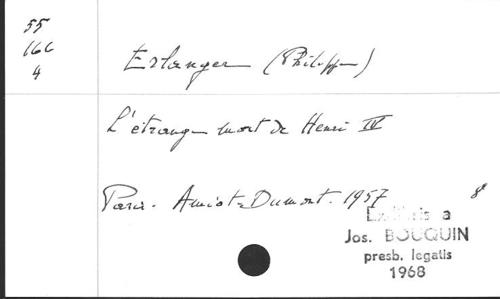 55
166
4
Erlanger (Philippe)
L'étrange mort de Henri IV
Paris. Amiot-Dumont. 1957 8
Ex libris a
Jos. BOUQUIN
presb. legatis
1968